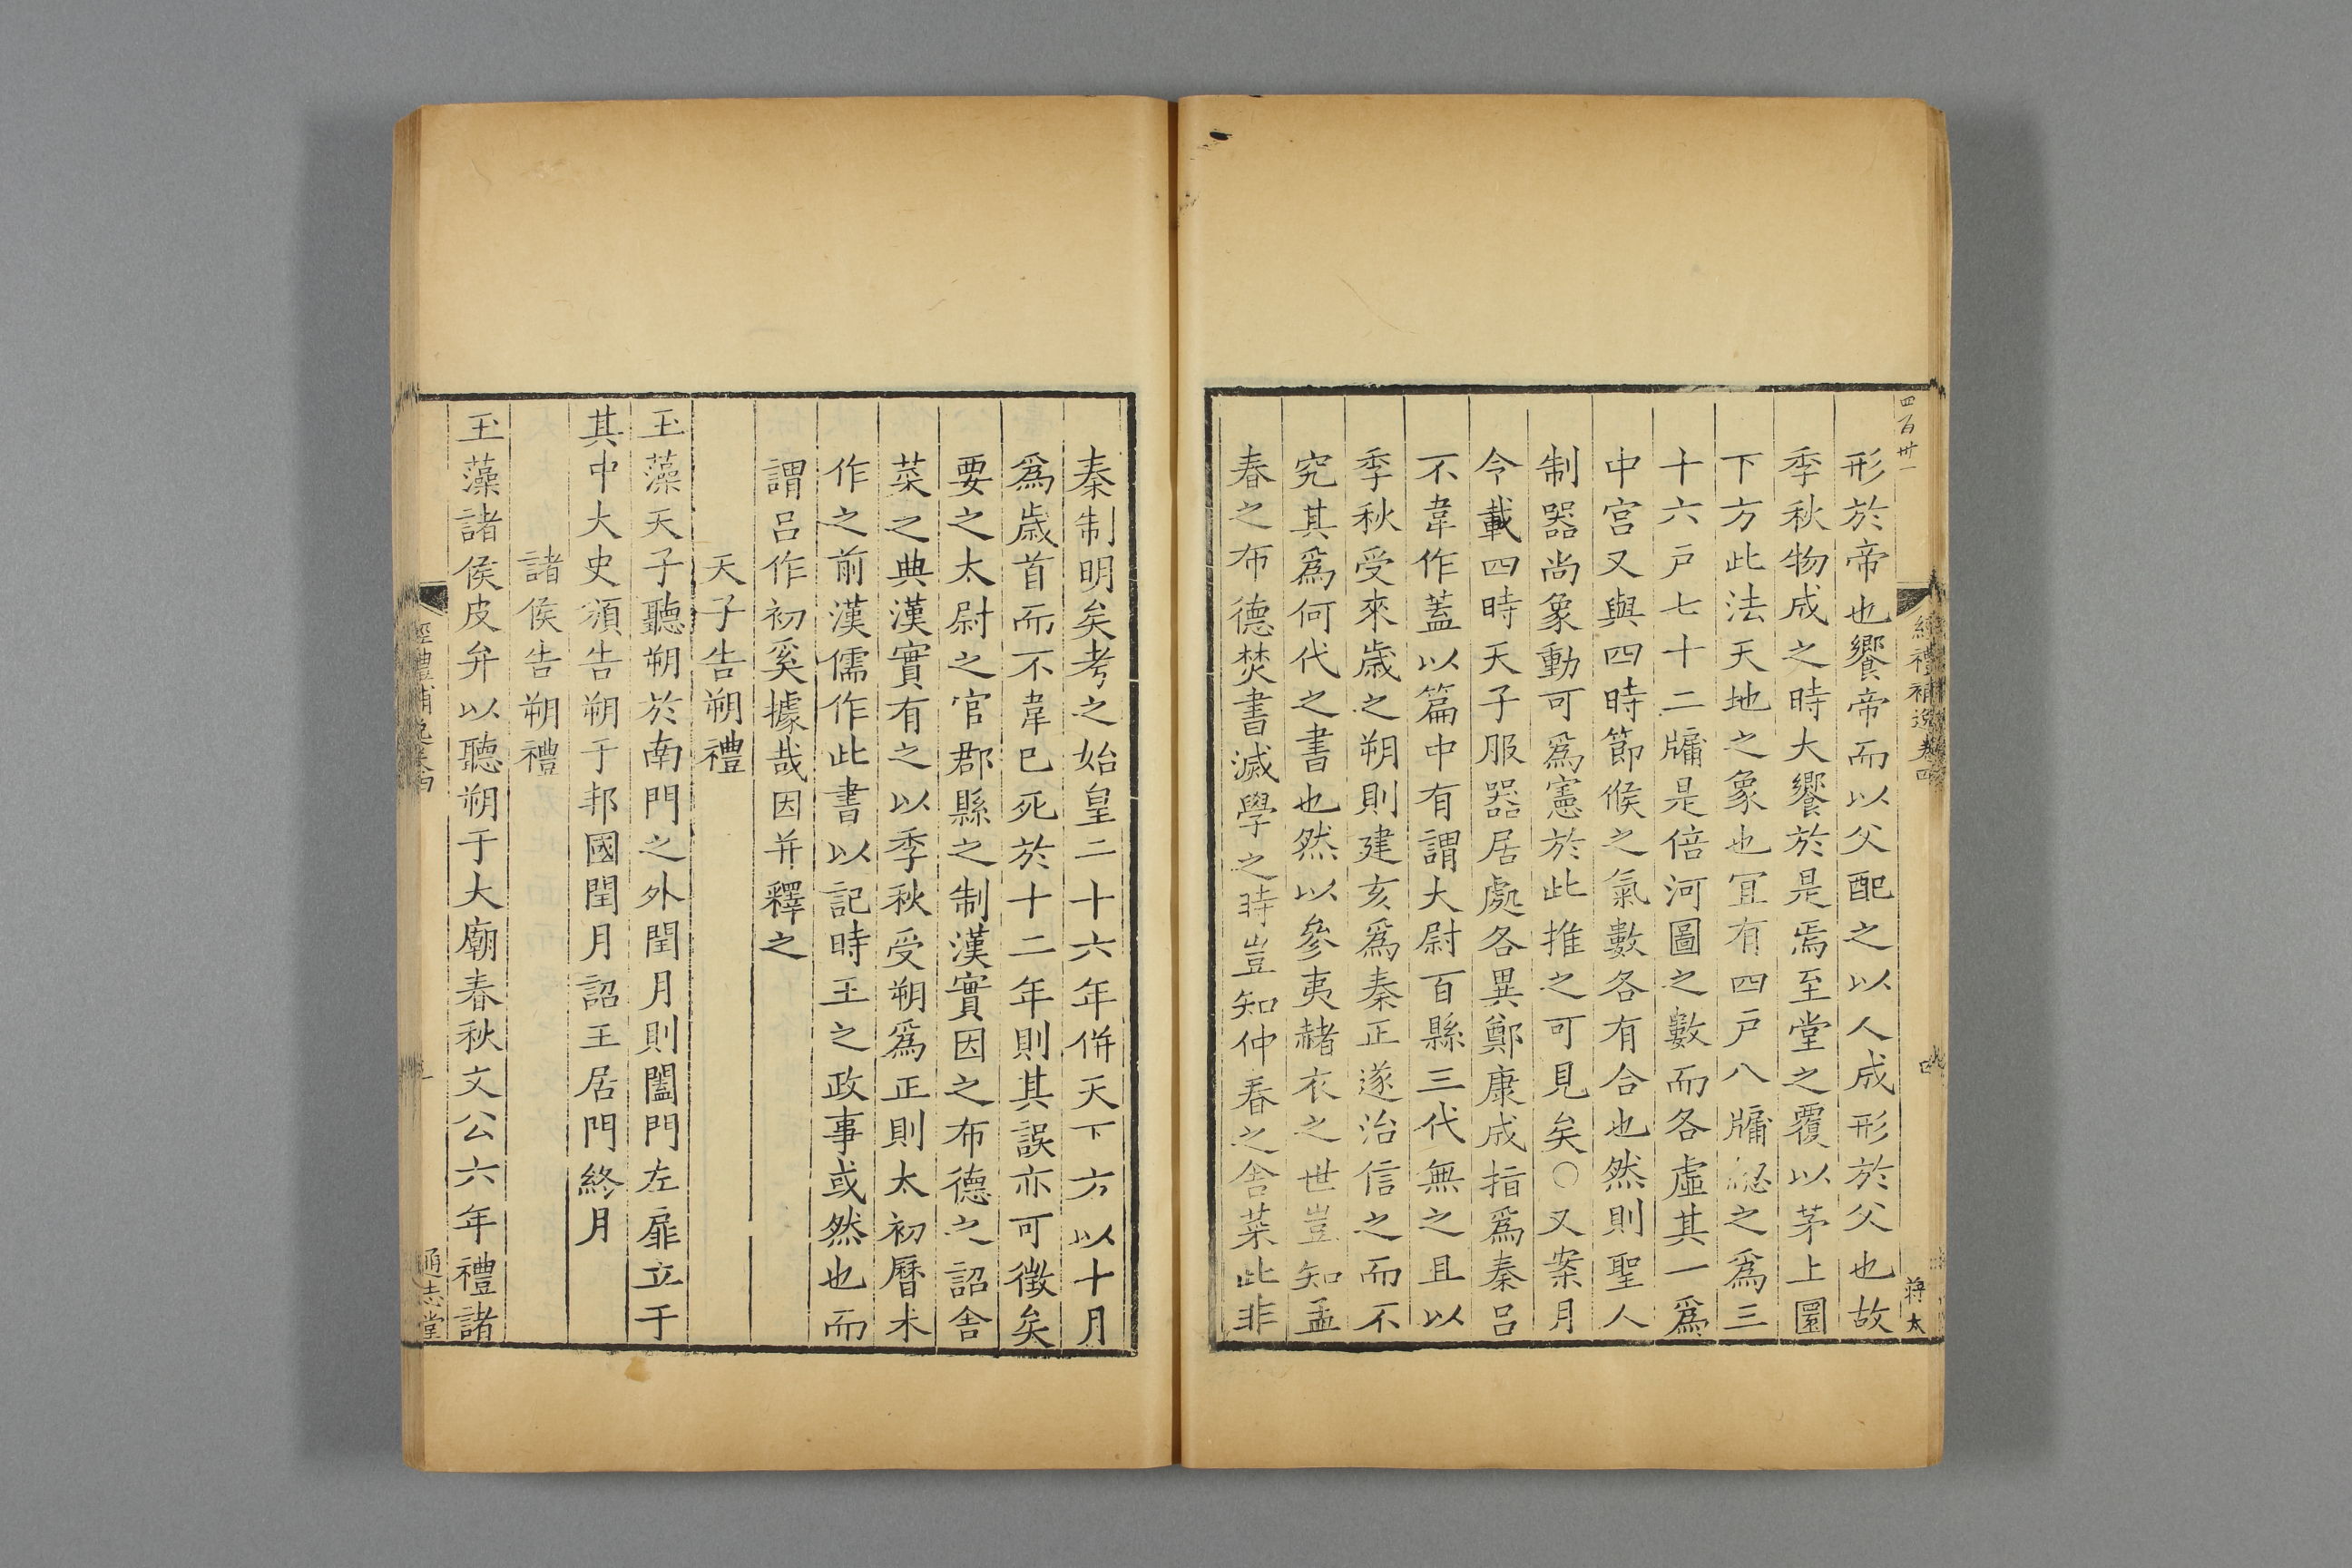 四百卅一
經禮補逸卷四
蔣太
形於帝也饗帝而以父配之以人成形於父也故
季秋物成之時大饗於是焉至堂之覆以茅上圜
下方此法天地之象也冝有四戸八牖緫之爲三
十六戸七十二牖是倍河圖之數而各虛其一爲
中宫又與四時節候之氣數各有合也然則聖人
制器尚象動可爲憲於此推之可見矣○又案月
令載四時天子服器居處各異鄭康成指爲秦吕
不韋作蓋以篇中有謂大尉百縣三代無之且以
季秋受來歳之朔則建亥爲秦正遂治信之而不
究其爲何代之書也然以參夷赭衣之世豈知孟
春之布德焚書滅學之時豈知仲春之舍菜此非
秦制明矣考之始皇二十六年併天下方以十月
爲歳首而不韋已死於十二年則其誤亦可徵矣
要之太尉之官郡縣之制漢實因之布德之詔舍
菜之典漢實有之以季秋受朔爲正則太初曆未
作之前漢儒作此書以記時王之政事或然也而
謂吕作初奚據哉因并釋之
天子告朔禮
玉藻天子聽朔於南門之外閏月則闔門左扉立于
其中大史頒告朔于邦國閏月詔王居門終月
諸侯告朔禮
玉藻諸侯皮弁以聽朔于大廟春秋文公六年禮諸
經禮補逸卷四
通志堂